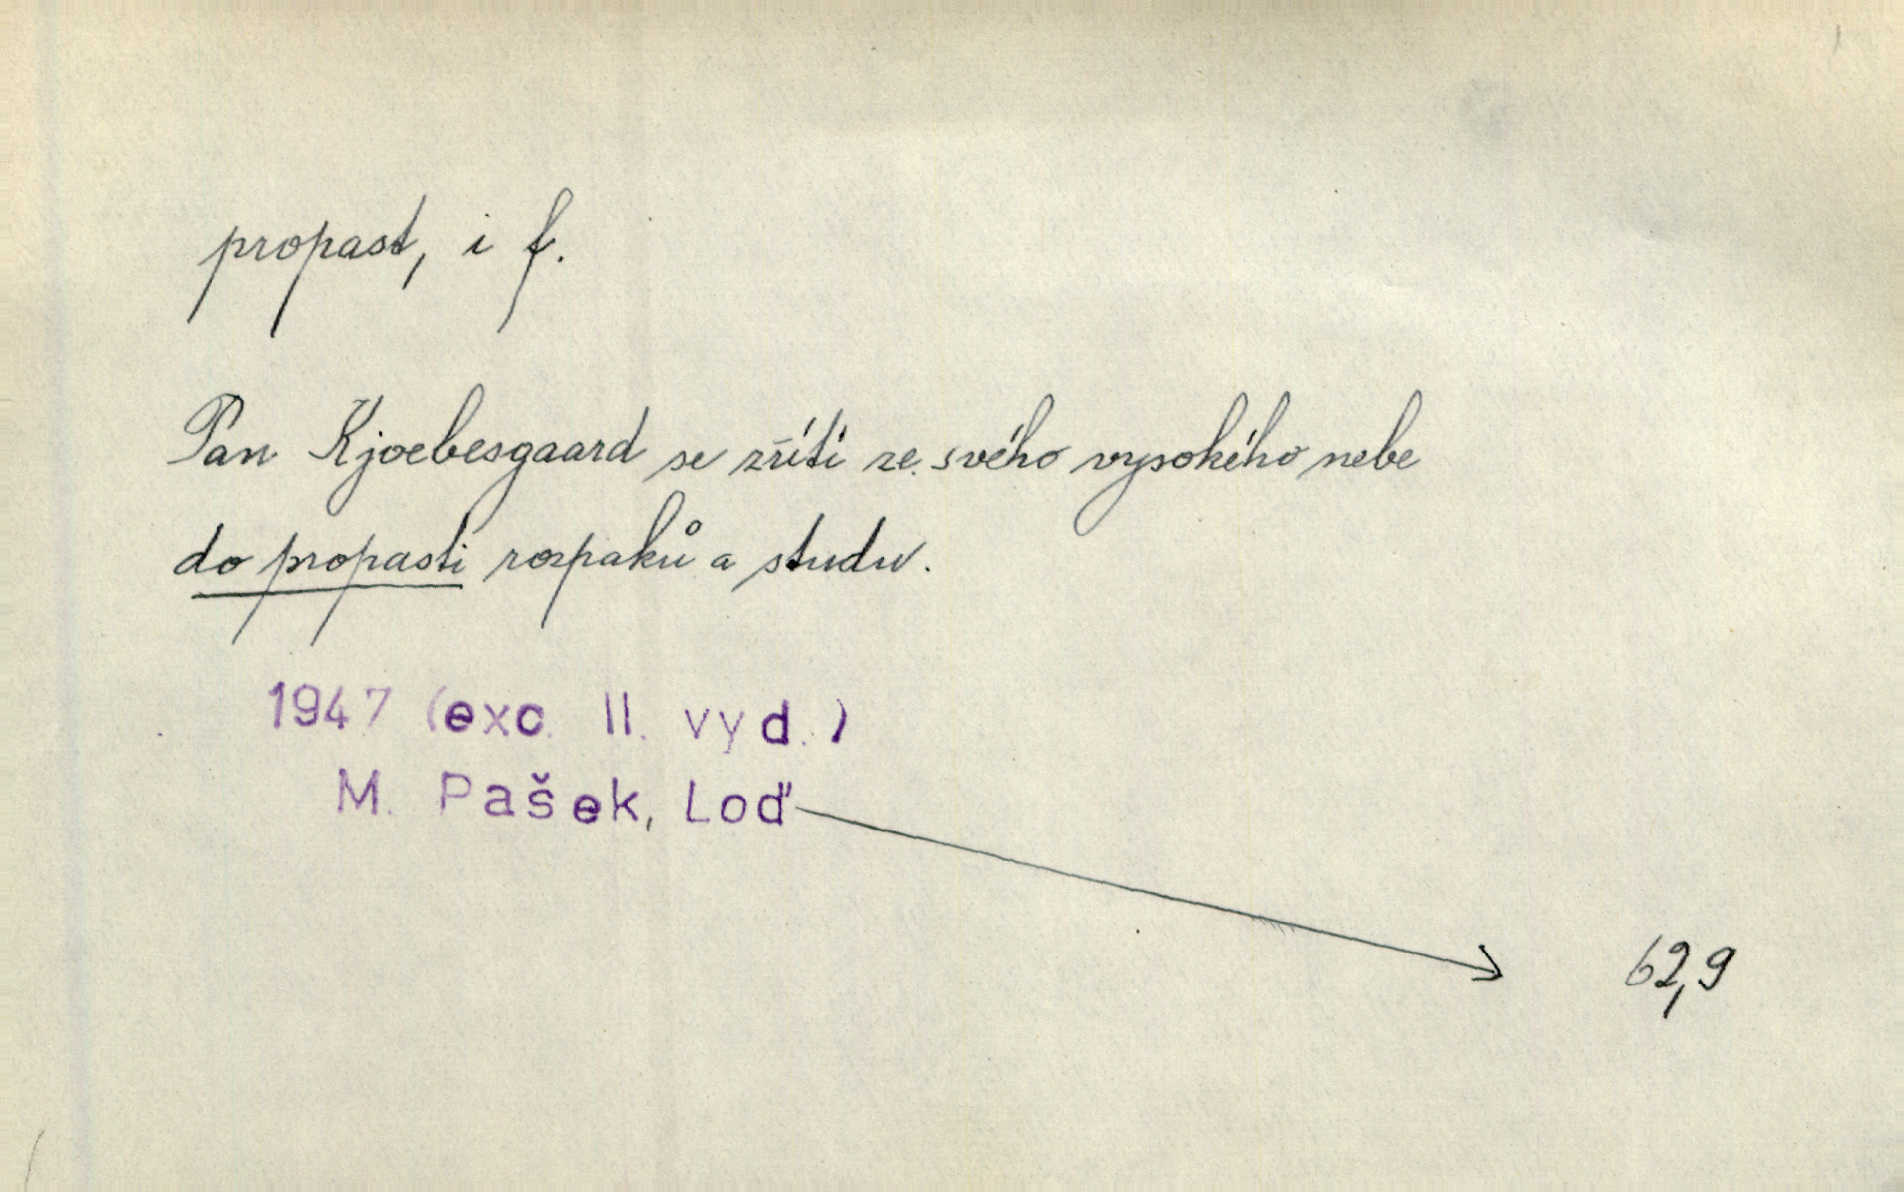 propast, i f.
Pan Kjoebesgaard se zřítí ze svého vysokého nebe
do propasti rozpaků a studu.
1947 (exc. II. vyd.)
M. Pašek, Loď
62,9